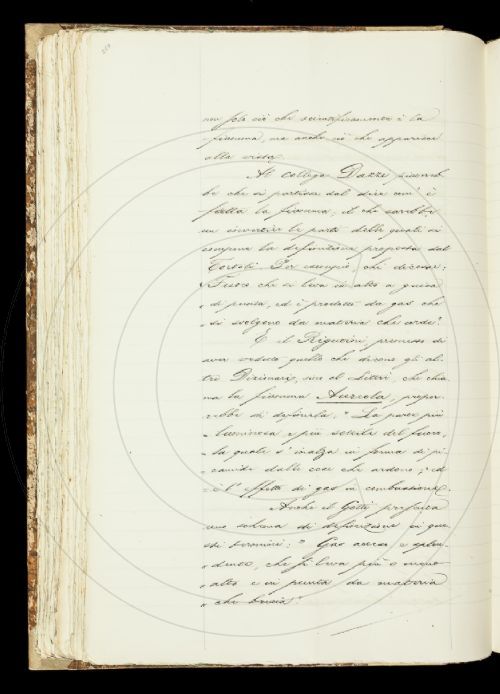 non solo ciò che scientificamente è la
" fiamma, ma anche ciò che apparisce
alla vista.
Al collega Dazzi piacereb-
be che si partisse dal dire com' è
fatta la fiamma, il che sarebbe
un invertire le parti delle quali si
compone la definizione proposta dal
Tortoli. Per esempio, chi dicesse:
" Fuoco che si leva in alto a guisa
" di punta, ed è prodotto da gas che
" si svolgono da materia che arde".
E il Rigutini, premesso di
aver veduto quello che dicono gli al-
tri Dizionarj, ma il Littré, che chia-
ma la fiamma Aureola, propor-
rebbe di definirla: " La parte più
" luminosa e più sottile del fuoco,
" la quale s' inalza in forma di pi-
" ramide dalle cose che ardono; ed
" è l' effetto di gas in combustione".
Anche il Gotti presenta
una sobria di definizione in que-
sti termini: " Gas acceso e splen-
" dente, che si leva più o meno
" alto e in punta da materia
" che brucia".